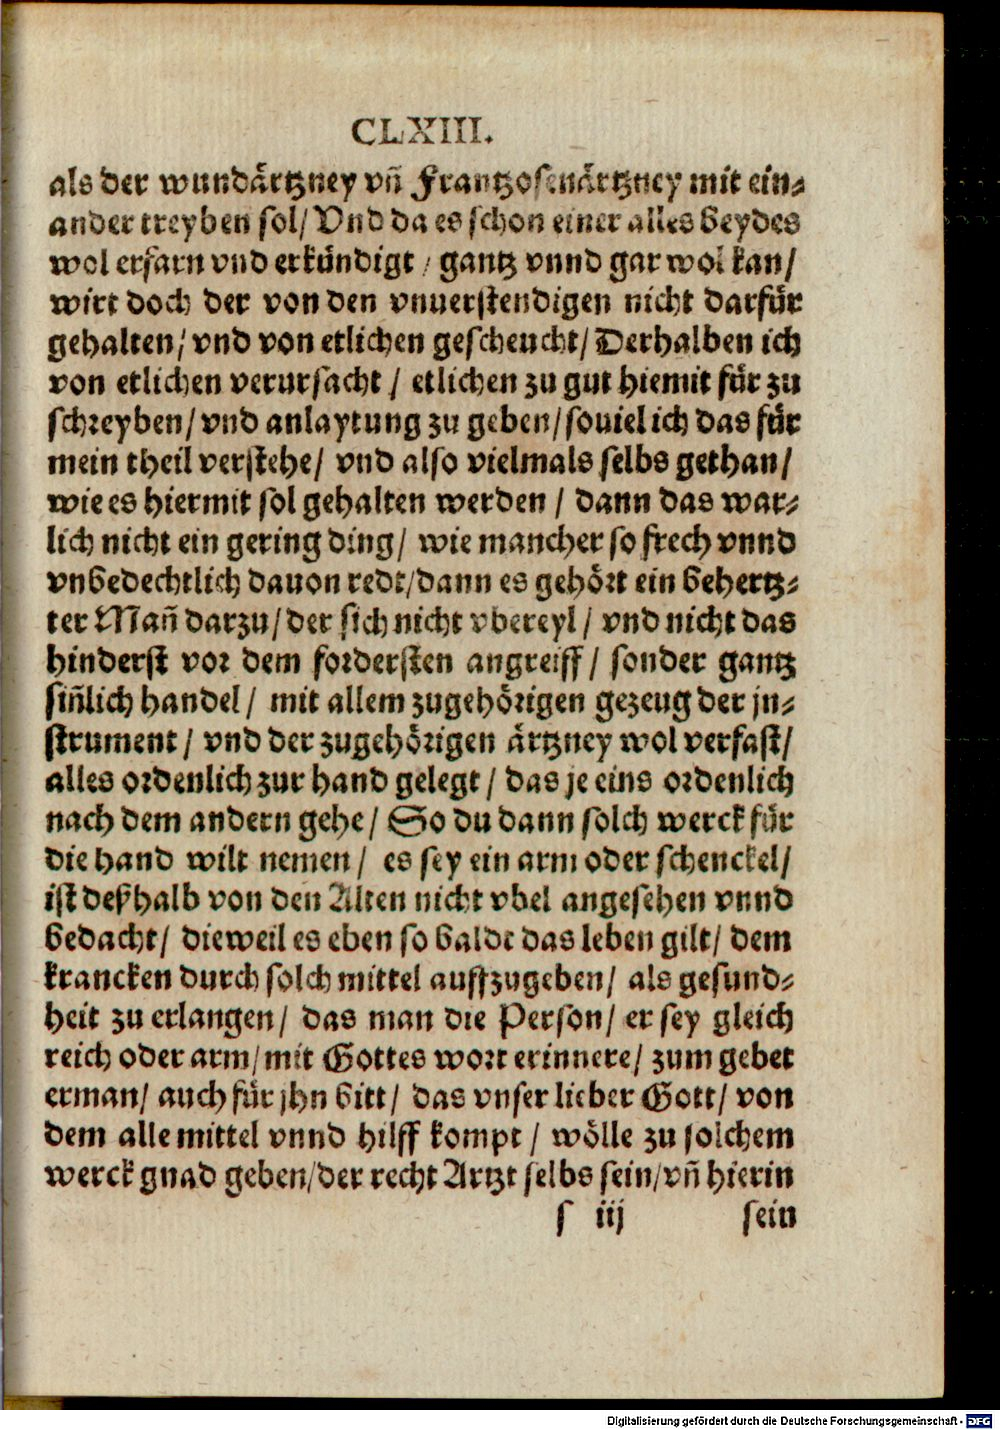 CLXIII.
als der wundärtzney vñ Frantzosenärtzney mit ein⸗
ander treyben sol/ Vnd da es schon einer alles beydes
wol erfarn vnd erkündigt / gantz vnnd gar wol kan/
wirt doch der von den vnuerstendigen nicht darfür
gehalten/ vnd von etlichen gescheucht/ Derhalben ich
von etlichen verursacht / etlichen zu gut hiemit für zu
schreyben/ vnd anlaytung zu geben/ souiel ich das für
mein theil verstehe/ vnd also vielmals selbs gethan/
wie es hiermit sol gehalten werden / dann das war⸗
lich nicht ein gering ding/ wie mancher so frech vnnd
vnbedechtlich dauon redt/dann es gehört ein behertz⸗
ter Mañ darzu/ der sich nicht vbereyl / vnd nicht das
hinderst vor dem fordersten angreiff / sonder gantz
siñlich handel / mit allem zugehörigen gezeug der jn⸗
strument / vnd der zugehörigen ärtzney wol verfast/
alles ordenlich zur hand gelegt / das je eins ordenlich
nach dem andern gehe/ So du dann solch werck für
die hand wilt nemen/ es sey ein arm oder schenckel/
ist deßhalb von den Alten nicht vbel angesehen vnnd
bedacht/ dieweil es eben so balde das leben gilt/ dem
krancken durch solch mittel auffzugeben/ als gesund⸗
heit zu erlangen/ das man die Person/ er sey gleich
reich oder arm/ mit Gottes wort erinnere/ zum gebet
erman/ auch für jhn bitt/ das vnser lieber Gott/ von
dem alle mittel vnnd hilff kompt / wölle zu solchem
werck gnad geben/der recht Artzt selbs sein/vñ hierin
s iij sein
Digitalisierung gefördert durch die Deutsche Forschungsgemeinschaft - DFG